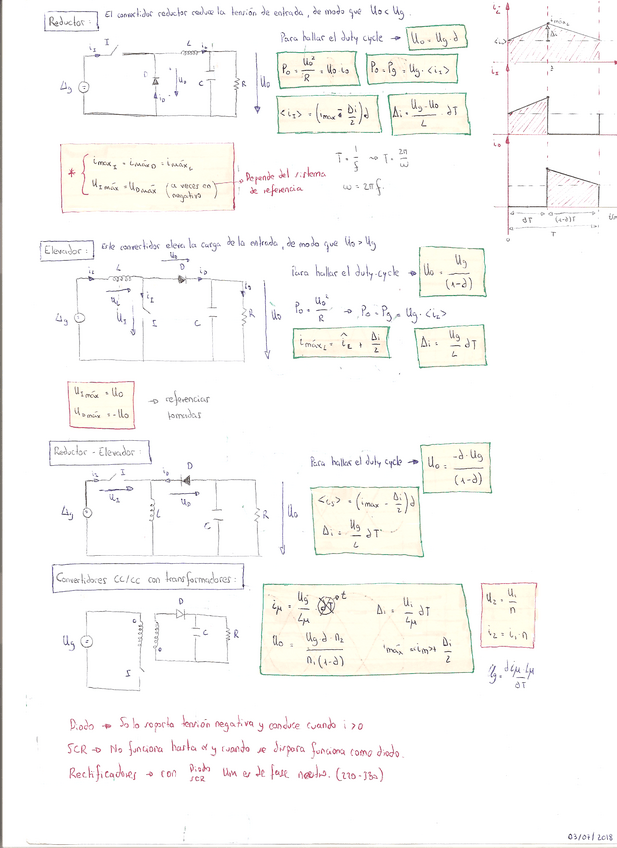 Reductor: El convertidor reductor reduce la tensión de entrada, de modo que Uo < Ug.
Para hallar el duty cycle → Uo = Ug·d
Po = Uo²/R = Uo·io
Po = Pg = Ug·<iI>
Δi = (Ug-Uo)/L dT
* imáxI = imáxD = imáxL
UImáx = UDmáx (a veces en negativo)
Depende del sistema de referencia
T = 1/f → T = 2π/ω
ω = 2πf
dT (1-d)T
T
Elevador: Este convertidor eleva la carga de la entrada, de modo que Uo > Ug
Para hallar el duty-cycle → Uo = Ug/(1-d)
Po = Uo²/R → Po = Pg = Ug·<iL>
imáxL = îL + Δi/2
Δi = Ug/L dT
UImáx = Uo
UDmáx = -Uo
→ referencias tomadas
Reductor - Elevador:
Para hallar el duty cycle → Uo = -d·Ug/(1-d)
Δi = Ug/L dT
Convertidores CC/CC con transformadores:
Δi = Ui/Lμ dT
Uo = Ug·d·n2/n1(1-d)
U2 = U1/n
i2 = i1·n
Diodo → Solo soporta tensión negativa y conduce cuando i>0.
SCR → No funciona hasta α y cuando se dispara funciona como diodo.
Rectificadores → con Diodo SCR Um es de fase neutro. (220-380)
03/07/2018